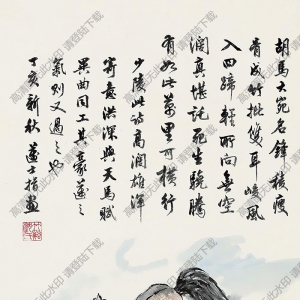 胡馬大宛名鋒稜瘦
骨成竹批雙耳峻風
入四蹄輕所向無空
闊真堪託死生驍騰
有如此萬里可橫行
少陵此詩高潤雄渾
寄意洪深與天馬賦
異曲同工其豪蕩之
氣則又過之也
丁亥新秋 蘧士指畫